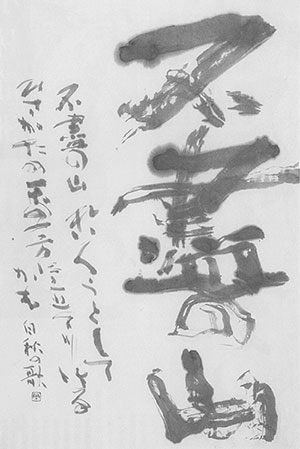 不盡の山
不盡の山れいろうとして
ひさかたの天の一方におはしける
かも 白秋の歌